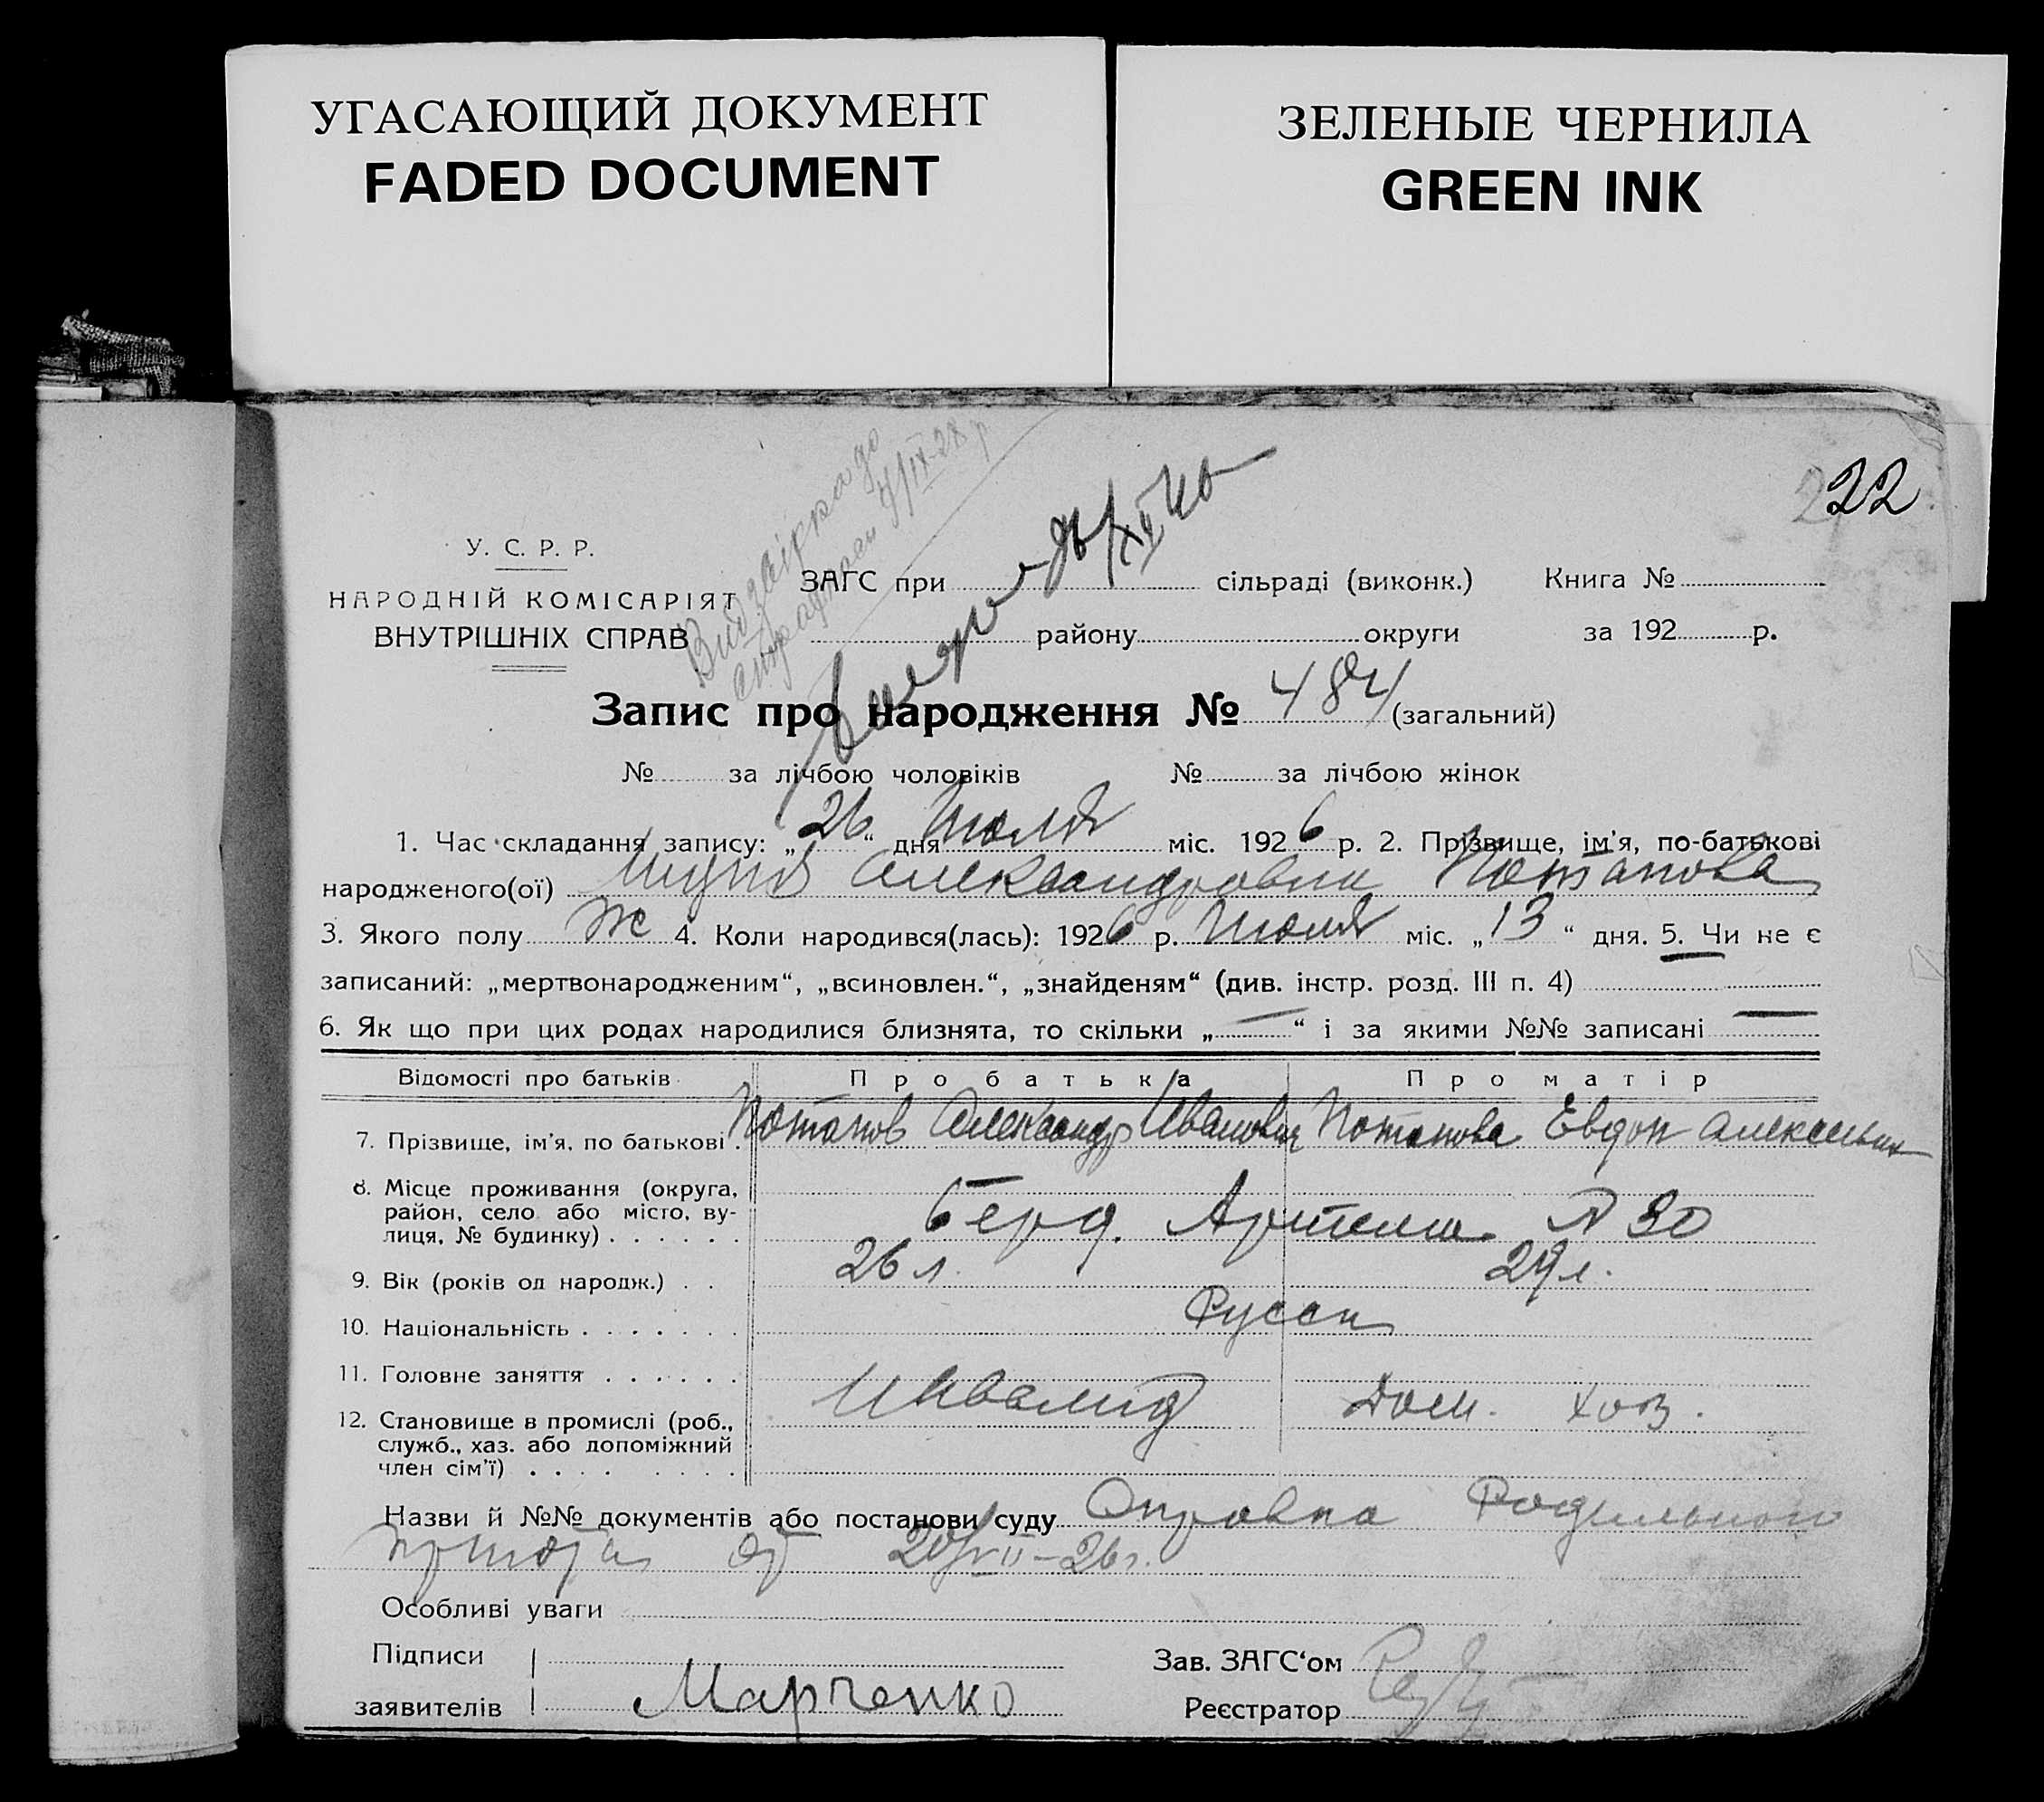 УГАСАЮЩИЙ ДОКУМЕНТ
FADED DOCUMENT
ЗЕЛЕНЫЕ ЧЕРНИЛА
GREEN INK
22
У. С. Р. Р.
НАРОДНІЙ КОМІСАРІЯТ
ВНУТРІШНІХ СПРАВ
ЗАГС при сільраді (виконк.) Книга №
району округи за 192 р.
Запис про народження № 484 (загальний)
№ за лічбою чоловіків № за лічбою жінок
1. Час складання запису: „26“ дня Июля міс. 1926 р. 2. Прізвище, ім'я, по-батькові
народженого(ої) Александровна Потапова
3. Якого полу Ж 4. Коли народився(лась): 1926 р. Июля міс. „13“ дня. 5. Чи не є
записаний: „мертвонародженим“, „всиновлен.“, „знайденям“ (див. інстр. розд. III п. 4)
6. Як що при цих родах народилися близнята, то скільки „—“ і за якими №№ записані —
Відомості про батьків Про батька Про матір
7. Прізвище, ім'я, по батькові Потапов Александр Иванович Потапова Евдок Алексеевна
8. Місце проживання (округа,
район, село або місто, ву-
лиця, № будинку) Берд. № 30
9. Вік (років од народж.) 26 л. 24 л.
10. Національність Русск
11. Головне заняття Инвалид Дом. хоз.
12. Становище в промислі (роб.,
служб., хаз. або допоміжний
член сім'ї)
Назви й №№ документів або постанови суду Справка Родильного
приюта от 20/VII-26 г.
Особливі уваги
Підписи
заявителів Марченко
Зав. ЗАГС'ом
Реєстратор